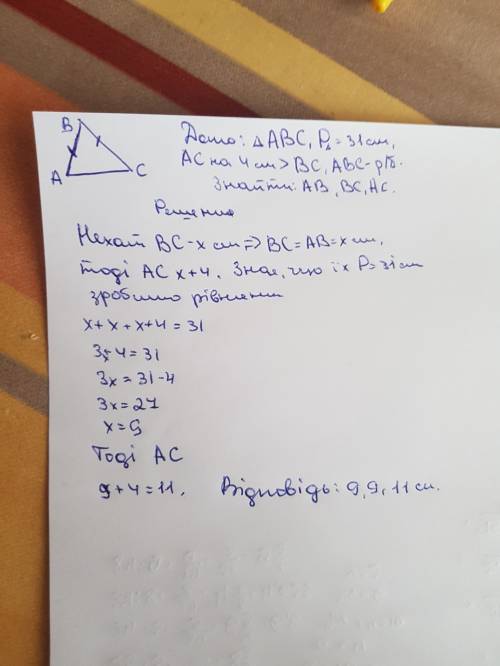 B
A
C
Дано: △ABC, P△=31см,
AC на 4 см > BC, ABC-р/б.
Знайти: AB, BC, AC.
Решение
Нехай BC-x см => BC=AB=x см,
тоді AC x+4. Знаю, що їх P=31см
зробимо рівняння
x+x+x+4=31
3x-4=31
3x=31-4
3x=27
x=9
Тоді AC
9+4=11. Відповідь: 9, 9, 11 см.